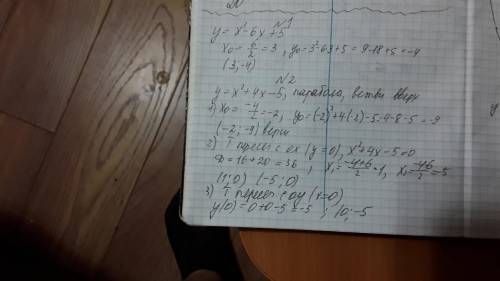 N1
y = x² - 6x + 5
x₀ = 6/2 = 3, y₀ = 3² - 6·3 + 5 = 9 - 18 + 5 = -4
(3; -4)
N2
y = x² + 4x - 5, парабола, ветви вверх
1) x₀ = -4/2 = -2, y₀ = (-2)² + 4(-2) - 5 = 4 - 8 - 5 = -9
(-2; -9) верш
2) T пересеч с ox (y=0), x² + 4x - 5 = 0
D = 16 + 20 = 36, x₁ = (-4+6)/2 = 1, x₂ = (-4-6)/2 = -5
(1; 0) (-5; 0)
3) T пересеч с oy (x=0)
y(0) = 0 + 0 - 5 = -5; (0; -5